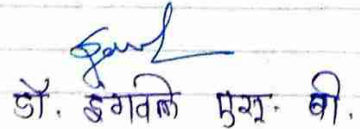 डॉ. इंगवले एस. बी.